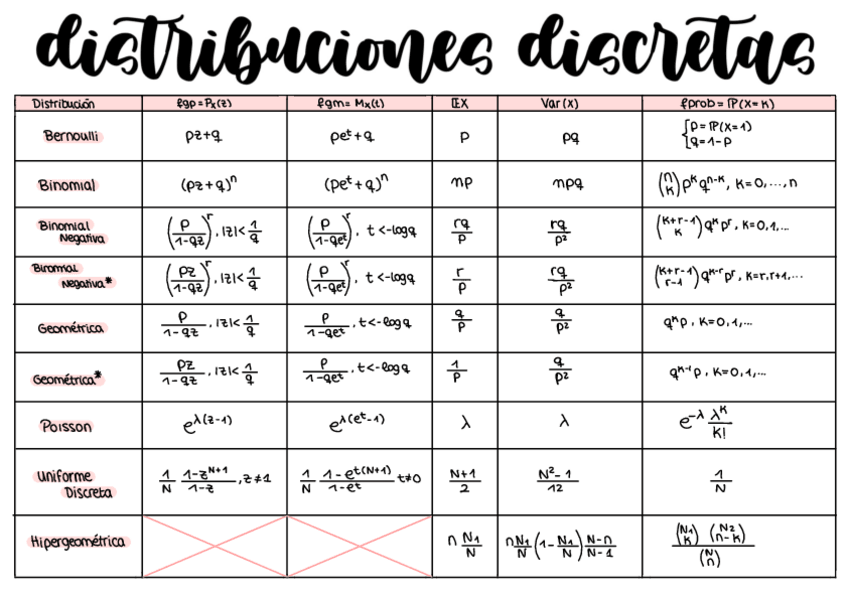 distribuciones discretas
Distribución fgp=Pₓ(z) fgm=Mₓ(t) EX Var(X) fprob=P(X=K)
Bernoulli pz+q pe^t+q p pq {p=P(X=1) q=1-p
Binomial (pz+q)^n (pe^t+q)^n np npq (n K) p^K q^{n-K}, K=0,...,n
Binomial Negativa (p/(1-qz))^r, |z|<1/q (p/(1-qe^t))^r, t<-logq rq/p rq/p² (K+r-1 K) q^K p^r, K=0,1,...
Binomial Negativa* (pz/(1-qz))^r, |z|<1/q (p/(1-qe^t))^r, t<-logq r/p rq/p² (K+r-1 r-1) q^{K-r} p^r, K=r,r+1,...
Geométrica p/(1-qz), |z|<1/q p/(1-qe^t), t<-logq q/p q/p² q^K p, K=0,1,...
Geométrica* pz/(1-qz), |z|<1/q p/(1-qe^t), t<-logq 1/p q/p² q^{K-1} p, K=0,1,...
Poisson e^{λ(z-1)} e^{λ(e^t-1)} λ λ e^{-λ} λ^K/K!
Uniforme Discreta 1/N (1-z^{N+1})/(1-z), z≠1 1/N (1-e^{t(N+1)})/(1-e^t) t≠0 (N+1)/2 (N²-1)/12 1/N
Hipergeométrica n N₁/N n N₁/N (1-N₁/N) (N-n)/(N-1) (N₁ K) (N₂ n-K)/(N n)